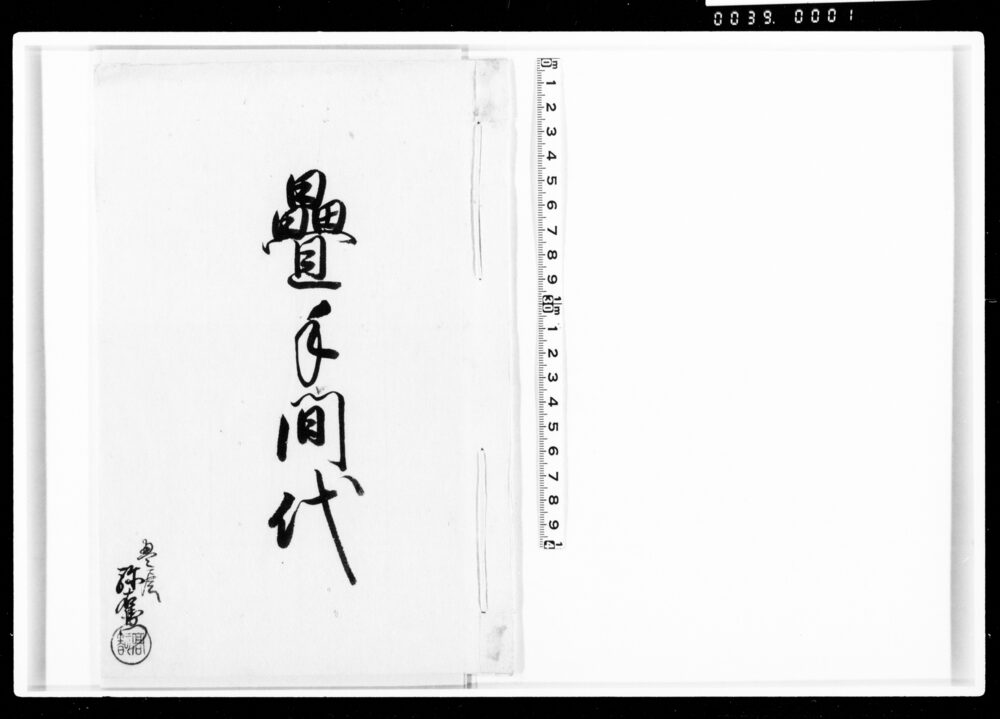 0039. 0001
疊手間代
m 1 2 3 4 5 6 7 8 9 1m 1 2 3 4 5 6 7 8 9